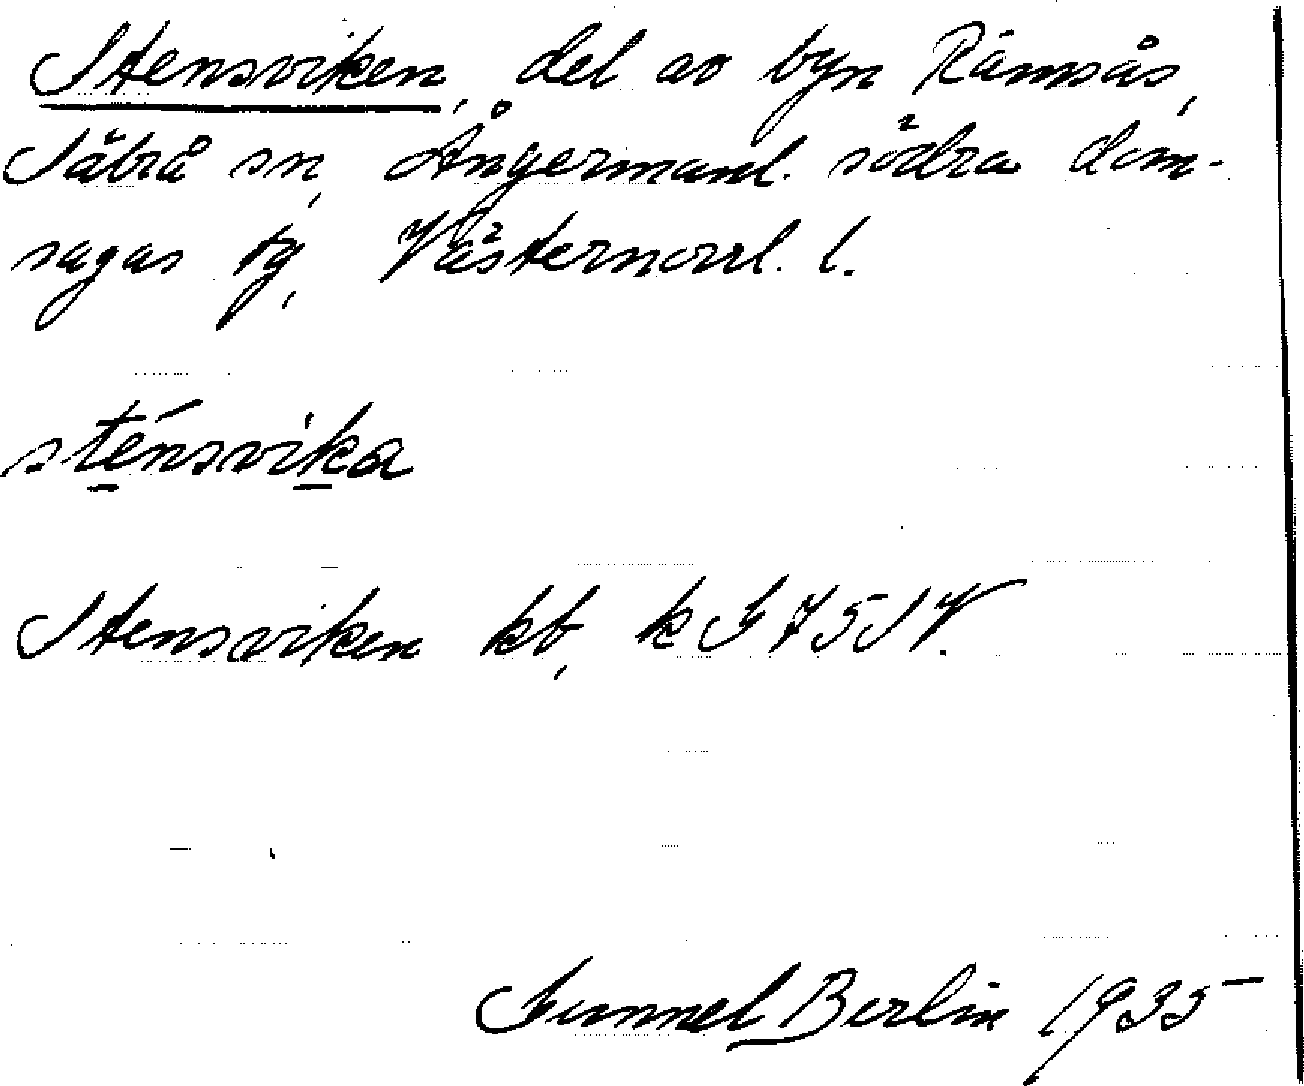 Stensviken, del av byn Rämsås,
Säbrå sn, Ångermanl. södra dom-
sagas tg, Västernorrl. l.
sténsvika
Stensviken kb, k G 75 IV.
Gunnel Berlin 1935